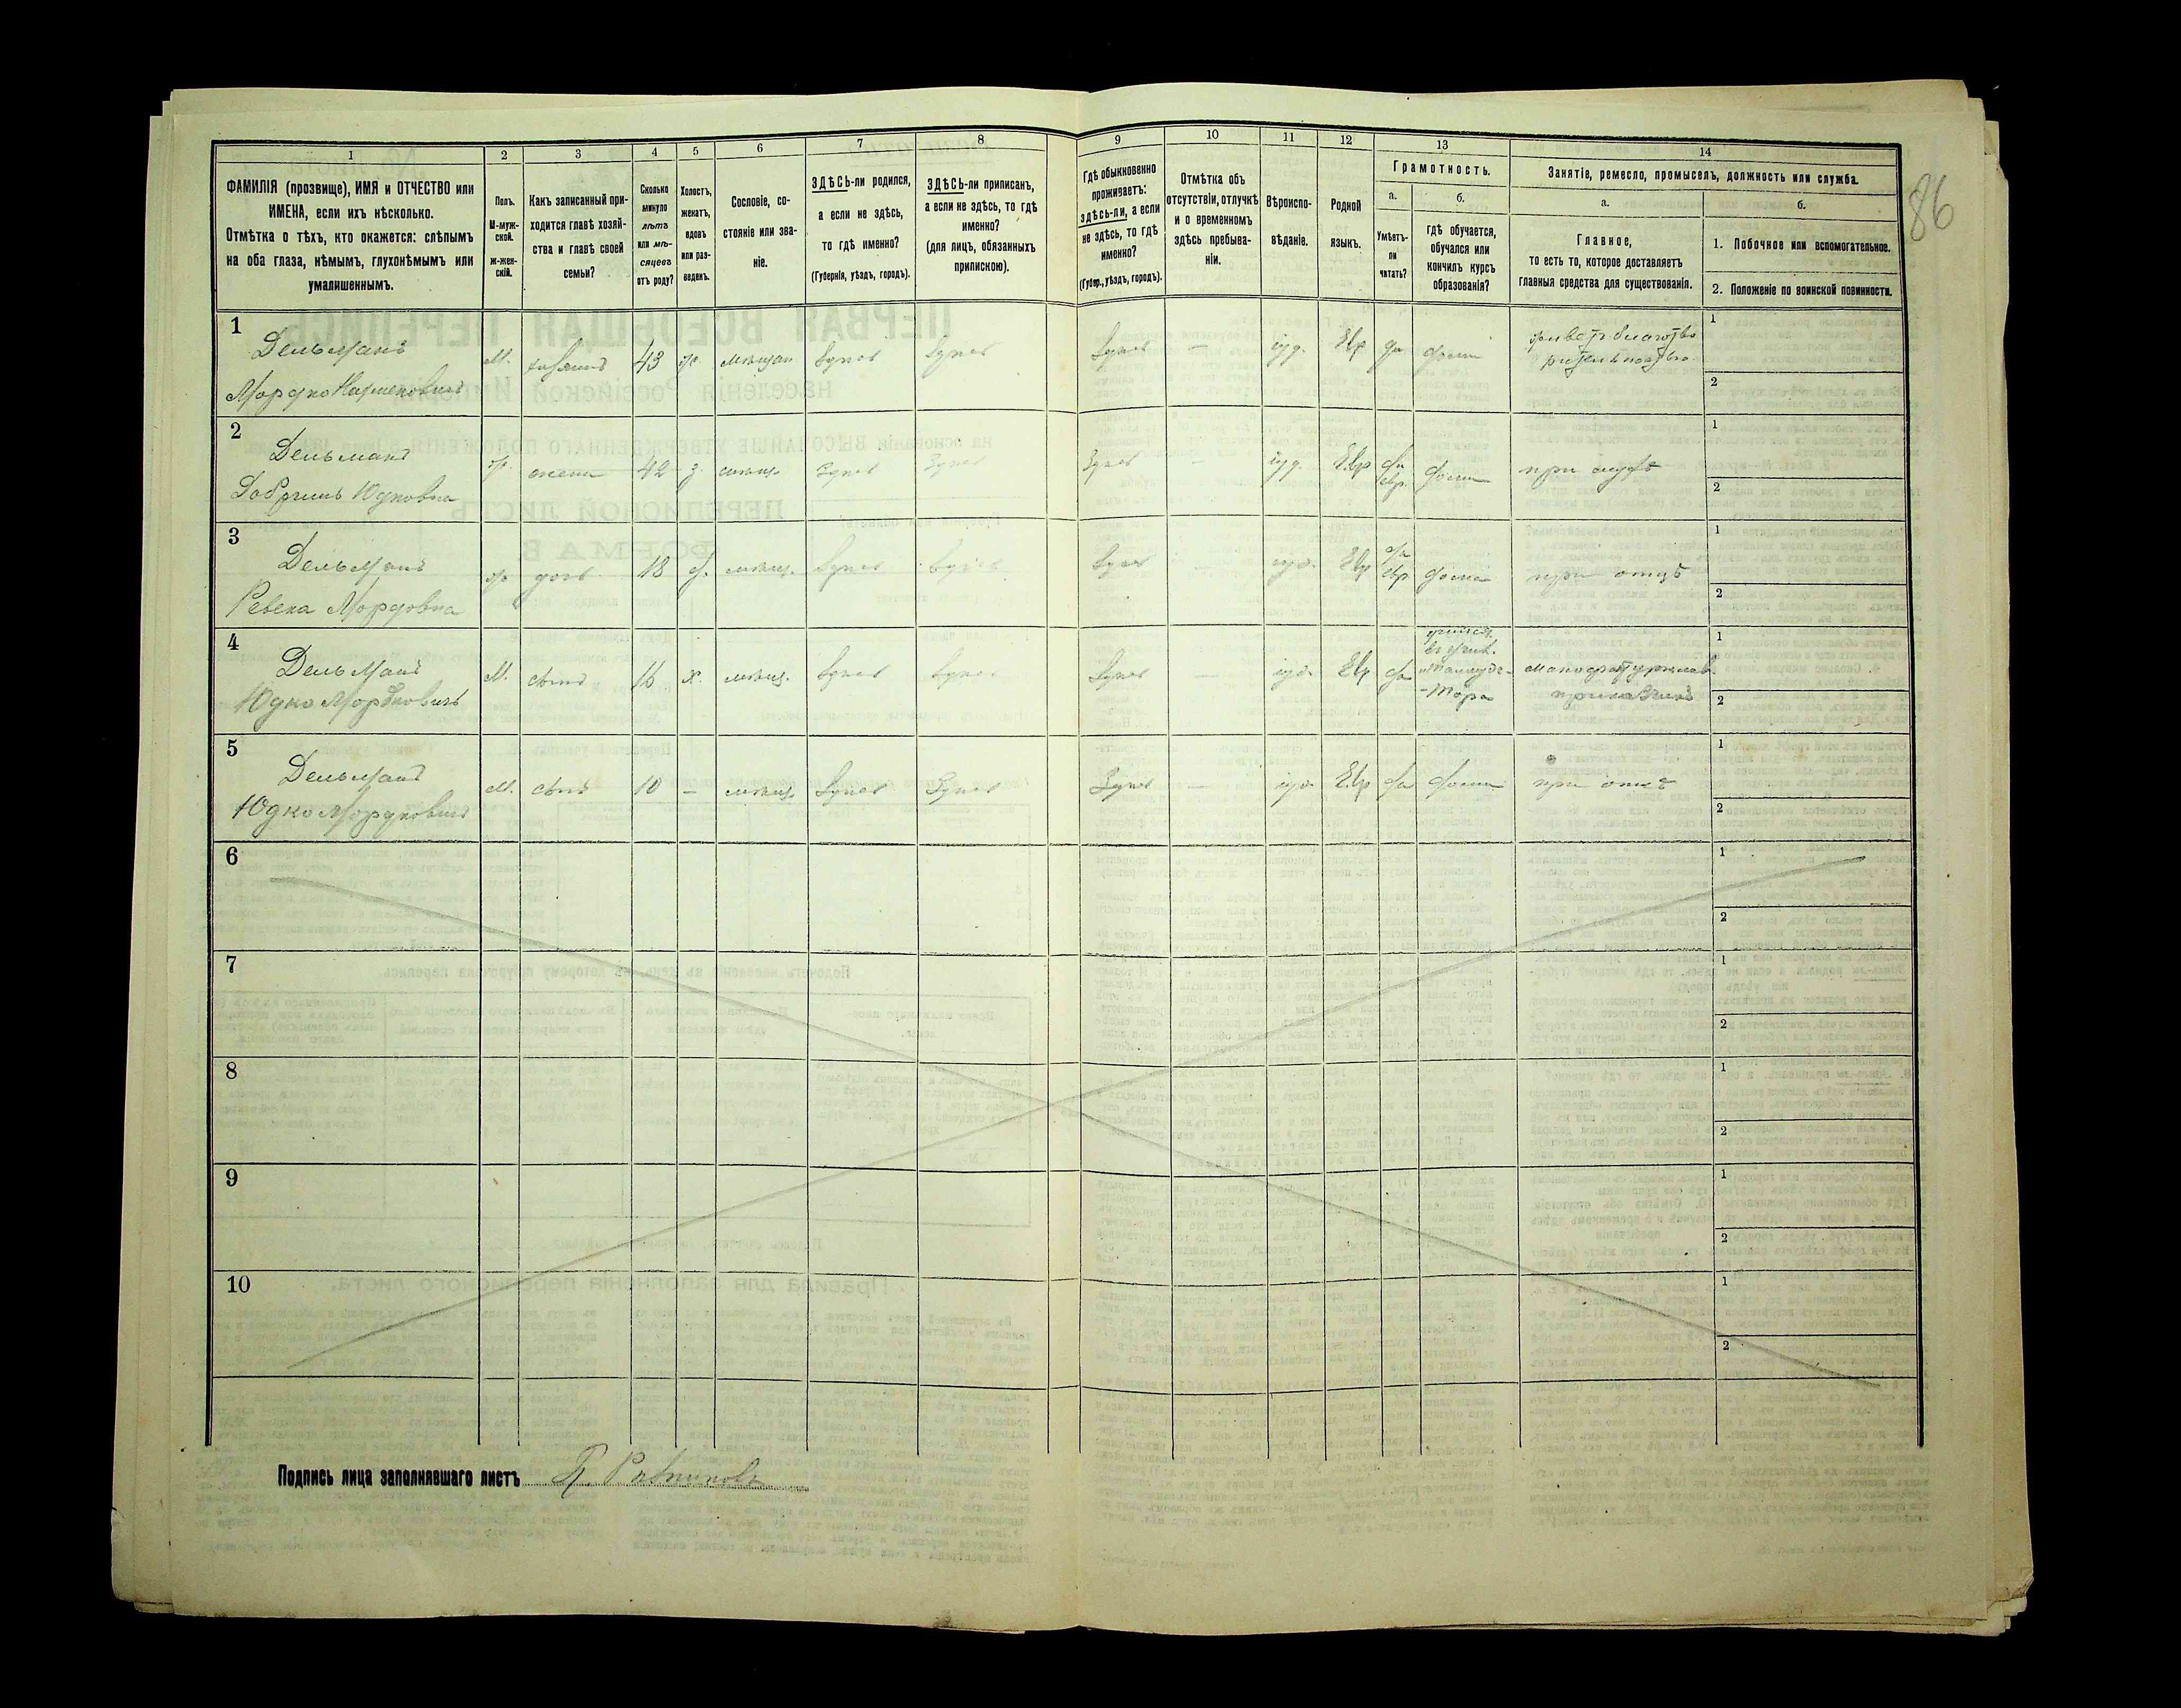 1
2
3
4
5
6
7
8
9
10
11
12
13
14
ФАМИЛІЯ (прозвище), ИМЯ и ОТЧЕСТВО или
ИМЕНА, если ихъ нѣсколько.
Отмѣтка о тѣхъ, кто окажется: слѣпымъ
на оба глаза, нѣмымъ, глухонѣмымъ или
умалишеннымъ.
Полъ.
М-муж-
ской.
ж-жен-
скій.
Какъ записанный при-
ходится главѣ хозяй-
ства и главѣ своей
семьи?
Сколько
минуло
лѣтъ
или мѣ-
сяцевъ
отъ роду?
Холостъ,
женатъ,
вдовъ
или раз-
веденъ.
Сословіе, со-
стояніе или зва-
ніе.
ЗДѢСЬ-ли родился,
а если не здѣсь,
то гдѣ именно?
(Губернія, уѣздъ, городъ).
ЗДѢСЬ-ли приписанъ,
а если не здѣсь, то гдѣ
именно?
(для лицъ, обязанныхъ
припискою).
Гдѣ обыкновенно
проживаетъ:
здѣсь-ли, а если
не здѣсь, то гдѣ
именно?
(Губер., уѣздъ, городъ).
Отмѣтка объ
отсутствіи, отлучкѣ
и о временномъ
здѣсь пребыва-
ніи.
Вѣроиспо-
вѣданіе.
Родной
языкъ.
Грамотность.
а.
Умѣетъ-
ли
читать?
б.
гдѣ обучается,
обучался или
кончилъ курсъ
образованія?
Занятіе, ремесло, промыселъ, должность или служба.
а.
Главное,
то есть то, которое доставляетъ
главныя средства для существованія.
б.
1. Побочное или вспомогательное.
2. Положеніе по воинской повинности.
86
1
Дельманъ
Мордко
М.
хозяинъ
43
ж
мѣщан
здѣсь
здѣсь
здѣсь
—
іуд.
Евр
да
дома
1
2
2
Дельманъ
Юдковна
ж
жена
42
з.
мѣщ.
здѣсь
здѣсь
здѣсь
—
іуд.
Евр
да
евр.
дома
при мужѣ
1
2
3
Дельманъ
Ревека Мордковна
ж
дочь
18
д.
мѣщ.
здѣсь
здѣсь
здѣсь
—
іуд.
Евр
да
евр
дома
при отцѣ
1
2
4
Дельманъ
Юдко Мордковичъ
М.
сынъ
16
х.
мѣщ.
здѣсь
здѣсь
здѣсь
—
іуд.
Евр
да
Талмудъ-
-Тора
приказчикъ
1
2
5
Дельманъ
Юдко Мордковичъ
М.
сынъ
10
—
мѣщ.
здѣсь
здѣсь
здѣсь
—
іуд.
Евр
да
дома
при отцѣ
1
2
6
1
2
7
1
2
8
1
2
9
1
2
10
1
2
Подпись лица заполнявшаго листъ